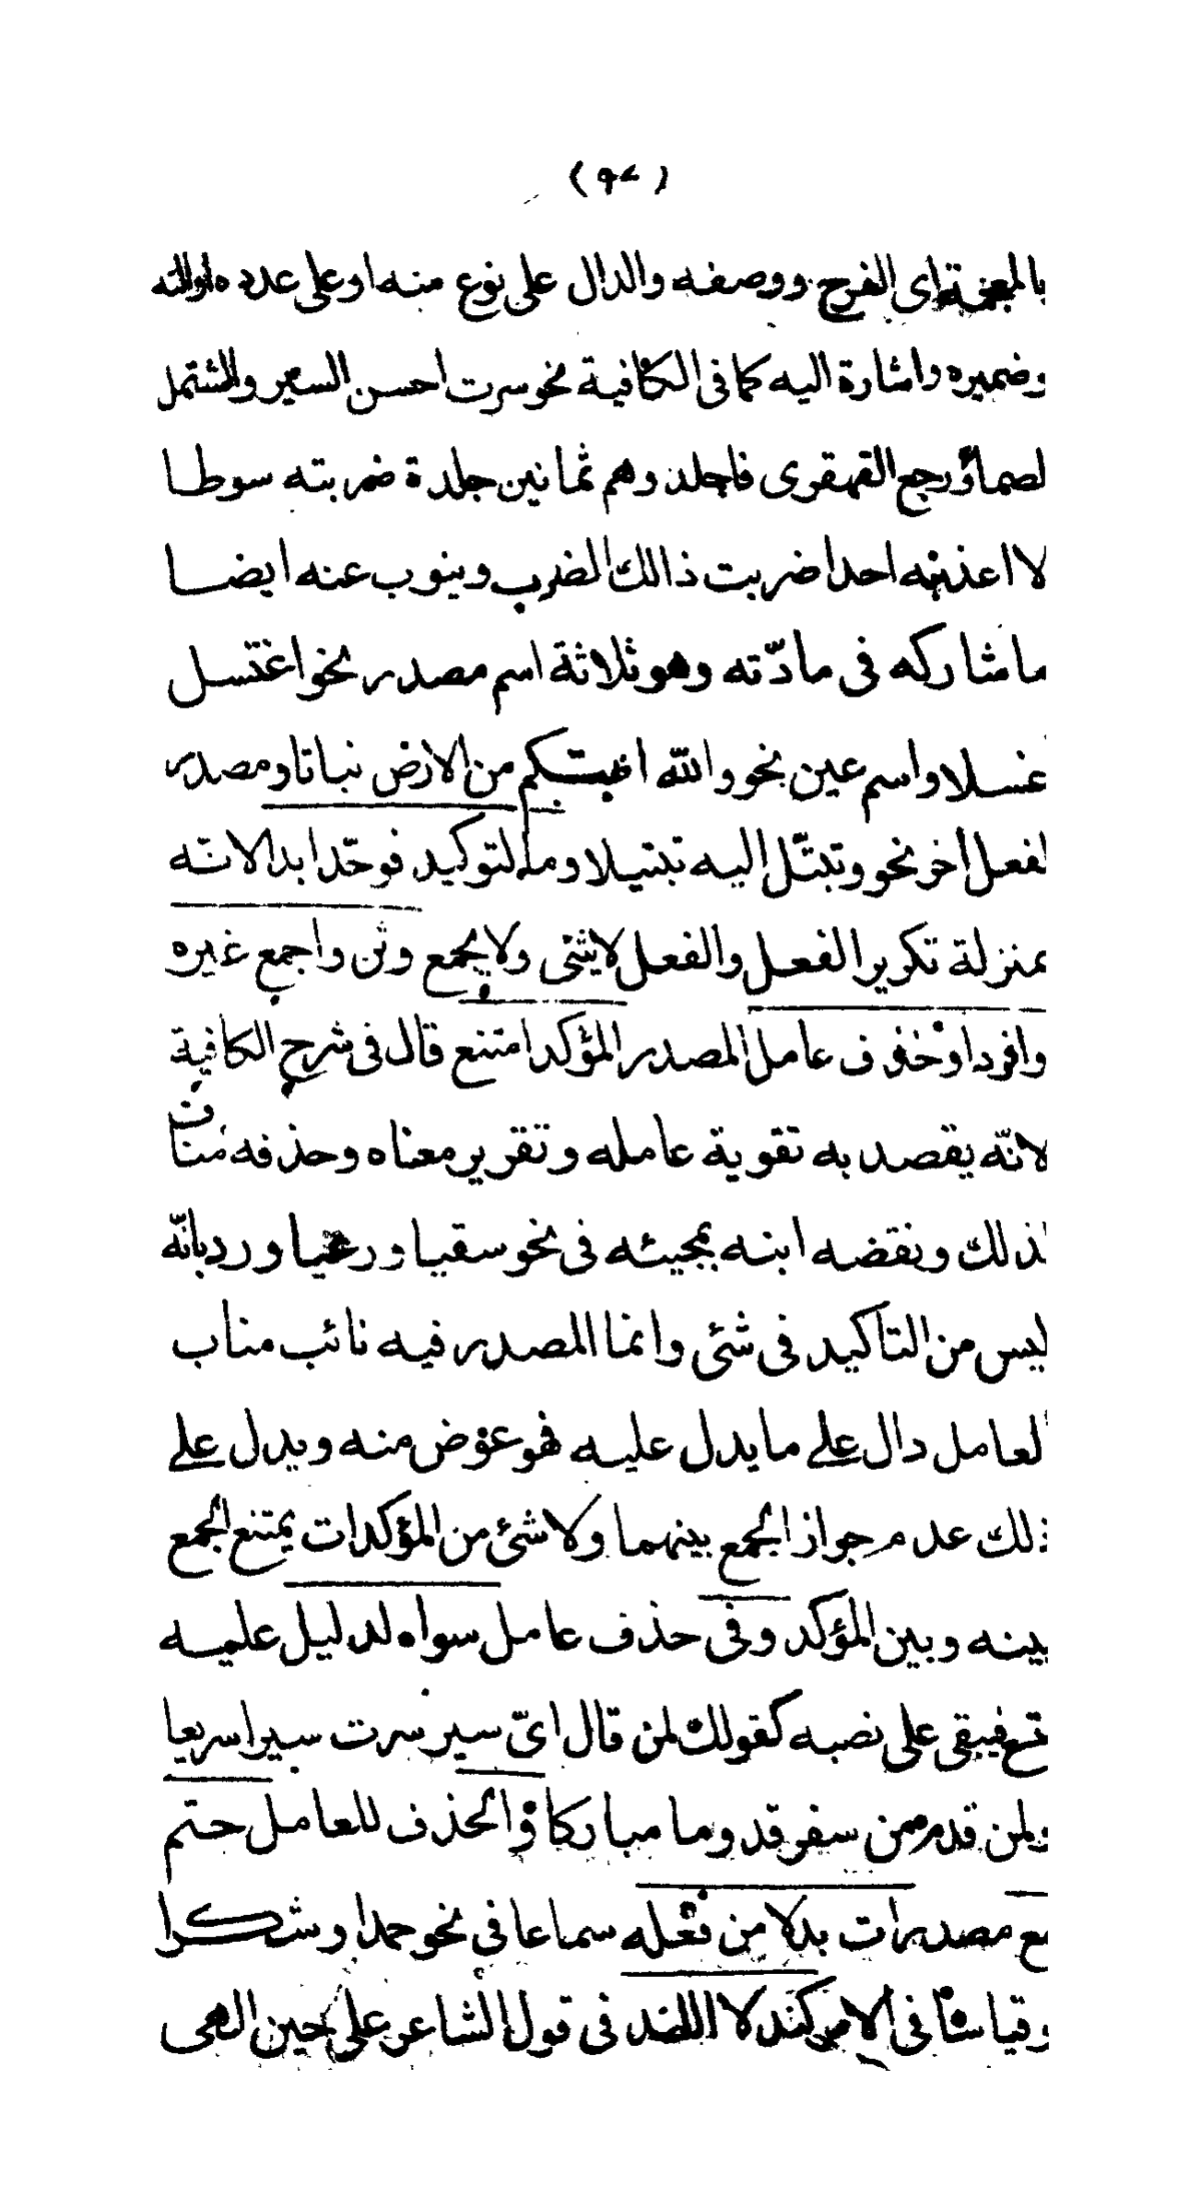 (٩٤)
بالمعجمة اى الفرح ووصفه والدال على نوع منه او على عدده او الته
وضميره واشارة اليه كما فى الكافية نحو سرت احسن السير واشتمل
لصماؤ رجع القهقرى فاجلدوهم ثمانين جلدة ضربته سوطا
لا اعذبه احدا ضربت ذالك الضرب وينوب عنه ايضا
ما شاركه فى مادّته وهو ثلاثة اسم مصدر نحو اغتسل
غسلا واسم عين نحو والله انبتكم من الارض نباتا ومصدر
لفعل اخر نحو وتبتّل اليه تبتيلا وما لتوكيد فوحّد ابدا لانّه
بمنزلة تكرير الفعل والفعل لا يثنى ولا يجمع وثن واجمع غيره
وافردا وحذف عامل المصدر المؤكد امتنع قال فى شرح الكافية
لانّه يقصد به تقوية عامله وتقرير معناه وحذفه مناف
لذلك ونقضه ابنه بمجيئه فى نحو سقيا ورعيا ورد بانّه
ليس من التاكيد فى شئى وانما المصدر فيه نائب مناب
العامل دال على ما يدل عليه فهو عوض منه ويدل على
ذلك عدم جواز الجمع بينهما ولا شئى من المؤكدات يمتنع الجمع
بينه وبين المؤكد وفى حذف عامل سواه لدليل عليه
متسع فيبقى على نصبه كقولك لمن قال اىّ سير سرت سيرا سريعا
ولمن قدم من سفر قدوما مباركا والحذف للعامل حتم
مع مصدرات بدلا من فعله سماعا فى نحو حمدا وشكرا
وقياسا فى الامر كندلا اللذ فى قول الشاعر على حين الهى